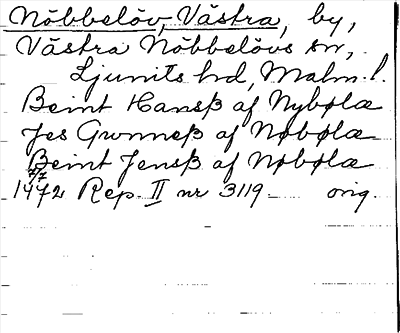 Nöbbelöv, Västra, by,
Västra Nöbbelövs sn,
Ljunits hd, Malm. l.
Beint Hansß af Nybølæ
Jes Gwnneß af Nøbølæ
Beint Jensß af Nøbølæ
7/7
1472 Rep. II nr 3119 orig.